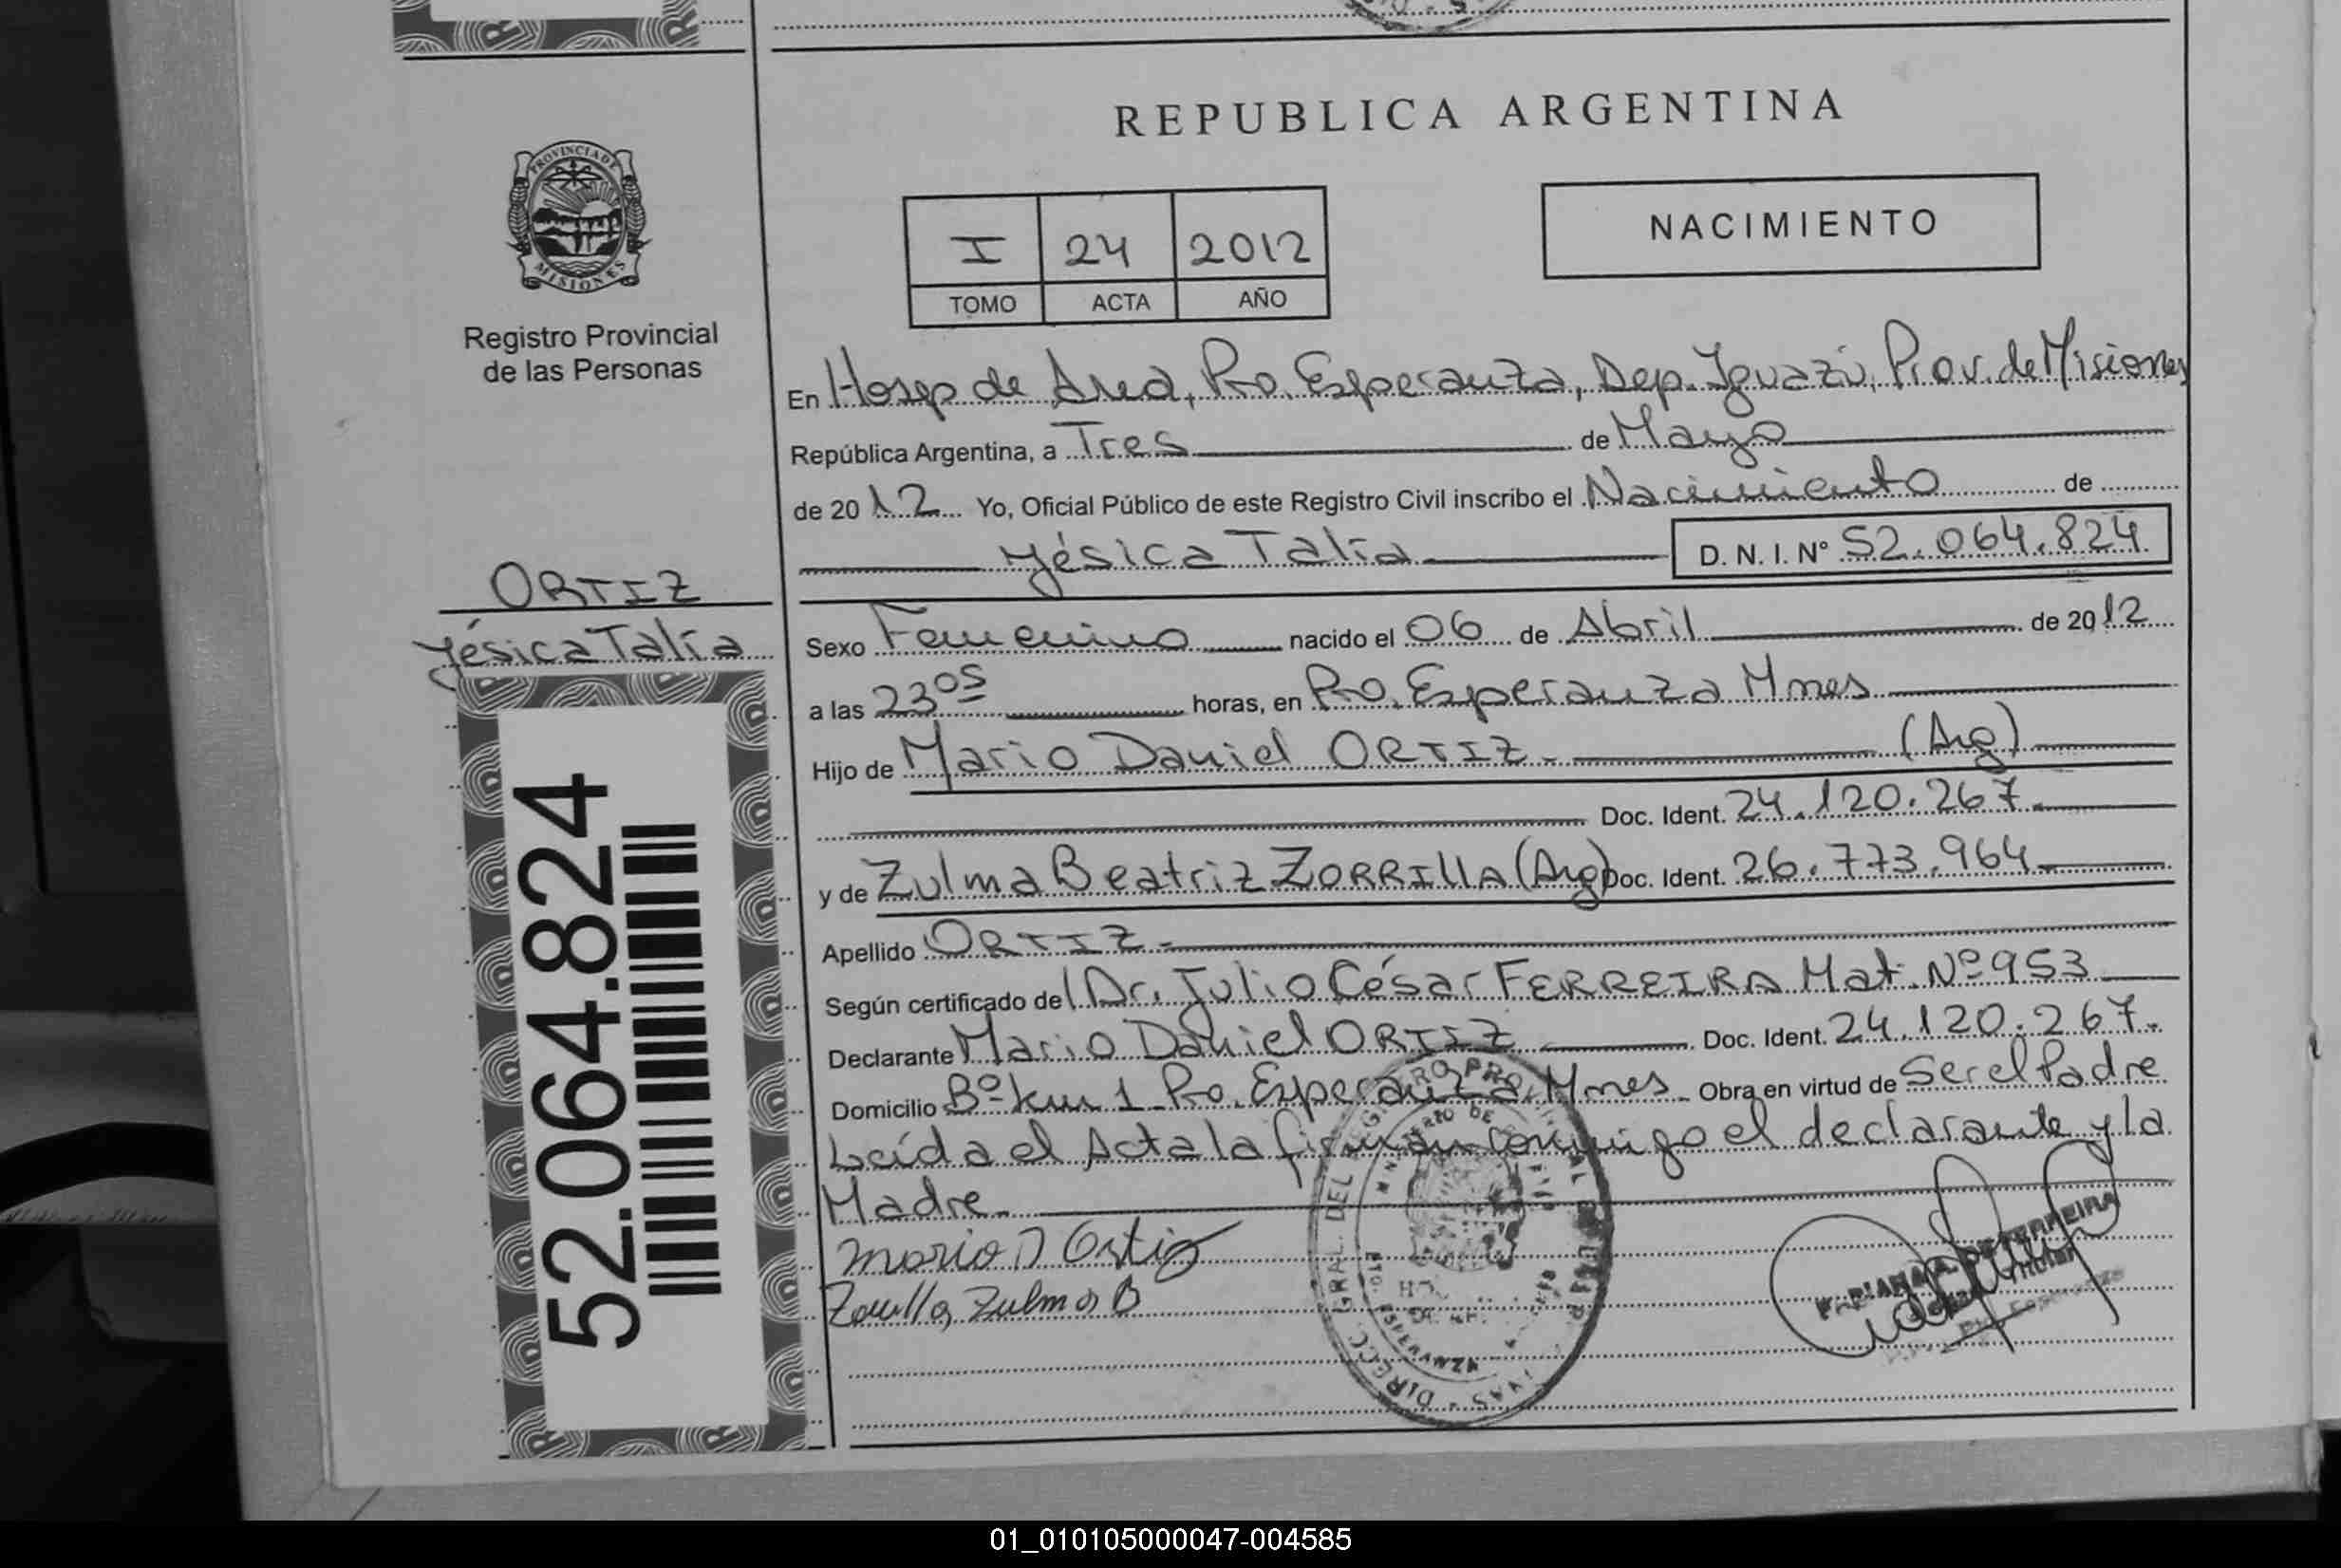 REPUBLICA ARGENTINA
PROVINCIA DE
MISIONES
Registro Provincial
de las Personas
I 24 2012
TOMO ACTA AÑO
NACIMIENTO
En Hosp de Area, Pto. Esperanza, Dep. Iguazú, Prov. de Misiones
República Argentina, a Tres de Mayo
de 2012 Yo, Oficial Público de este Registro Civil inscribo el Nacimiento de
Yésica Talía D. N. I. N° 52.064.824
ORTIZ
Yésica Talía
Sexo Femenino nacido el 06 de Abril de 2012
a las 23 05 horas, en Pto. Esperanza Mnes
Hijo de Mario Daniel ORTIZ. (Arg)
Doc. Ident. 24.120.267.
y de Zulma Beatriz ZORRILLA (Arg) Doc. Ident. 26.773.964
Apellido ORTIZ.
Según certificado del Dr. Julio César FERREIRA Mat. Nº 953
Declarante Mario Daniel ORTIZ Doc. Ident. 24.120.267.
Domicilio Bº km 1 Pto. Esperanza Mnes Obra en virtud de Ser el Padre
Leída el Acta la firman conmigo el declarante y la
Madre.
Mario D Ortiz
Zorrilla, Zulma B
52.064.824
DIRECC. GRAL. DEL REGISTRO PROVINCIAL
MINISTERIO DE
ESPERANZA
01_010105000047-004585